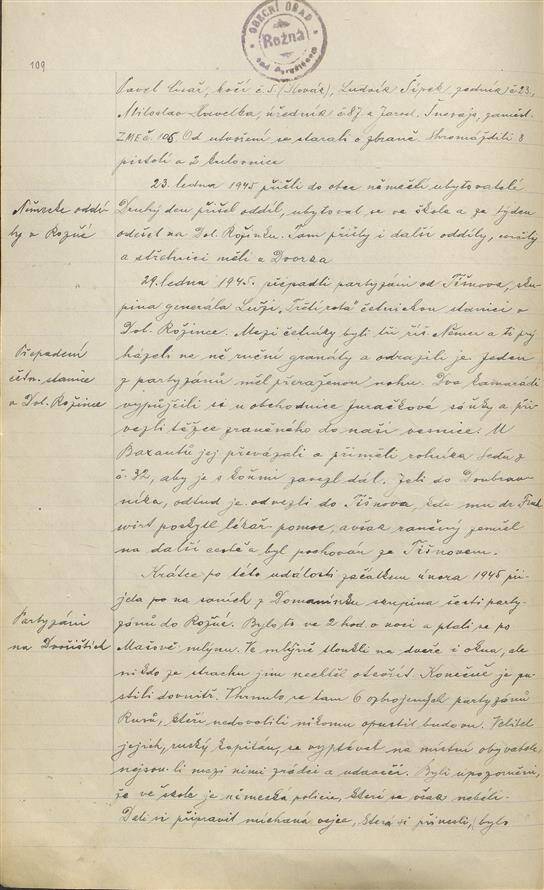 OBECNÍ ÚŘAD
Rožná
nad Pernštejnem
109
Pavel Císař, kočí č. 5. (Slovák), Ludvík Šípek zedník č. 23.,
Miloslav Havelka, úředník č. 87. a Jarosl. zaměst.
ZME č. 106. Od utvoření se starali o zbraně. Shromáždili 8
pistolí a 2 kulovnice
23. ledna 1945 přišli do obce němečtí ubytovatelé
Německé oddí-
ly v Rožné
Druhý den přišel oddíl, ubytoval se ve škole a za týden
odešel na Dol. Rožínku. Tam přišly i další oddíly,
a střelnici měli u Dvorka
29. ledna 1945. přepadli partyzáni od Tišnova, sku-
pina generála Luži, "Třetí rota" četnickou stanici v
Přepadení
četn. stanice
v Dol. Rožínce
Dol. Rožínce. Mezi četníky byli tři říš. Němci a ti
házeli na ně ruční granáty a odrazili je. Jeden
z partyzánů měl přeraženou nohu. Dva kamarádi
vypůjčili si u obchodnice Juračkové sáňky a při-
vezli těžce raněného do naší vesnice. U
Bazantů jej převázali a přiměli rolníka z
č. 32, aby je s koňmi zavezl dál. Jeli do Doubrav-
níka, odtud je odvezli do Tišnova, kde mu dr.
poskytl lékař. pomoc, avšak raněný zemřel
na další cestě a byl pochován za Tišnovem.
Krátce po této události začátkem února 1945 při-
jela po na saních z Domanínku skupina šesti party-
Partyzáni
na Dvořištích
zánů do Rožné. Bylo to ve 2 hod. v noci a ptali se po
Mašově mlýnu. Ve mlýně tloukli na dveře i okna, ale
nikdo ze strachu jim nechtěl otevřít. Konečně je pu-
stili dovnitř. Vhrnulo se tam 6 ozbrojených partyzánů
Rusů, kteří nedovolili nikomu opustit budovu. Velitel
jejich, ruský kapitán, se vyptával na místní obyvatele,
nejsou-li mezi nimi zrádci a udavači. Byli upozorněni,
že ve škole je německá policie, které se však nebáli.
Dali si připravit míchaná vejce, která si přinesli, bylo